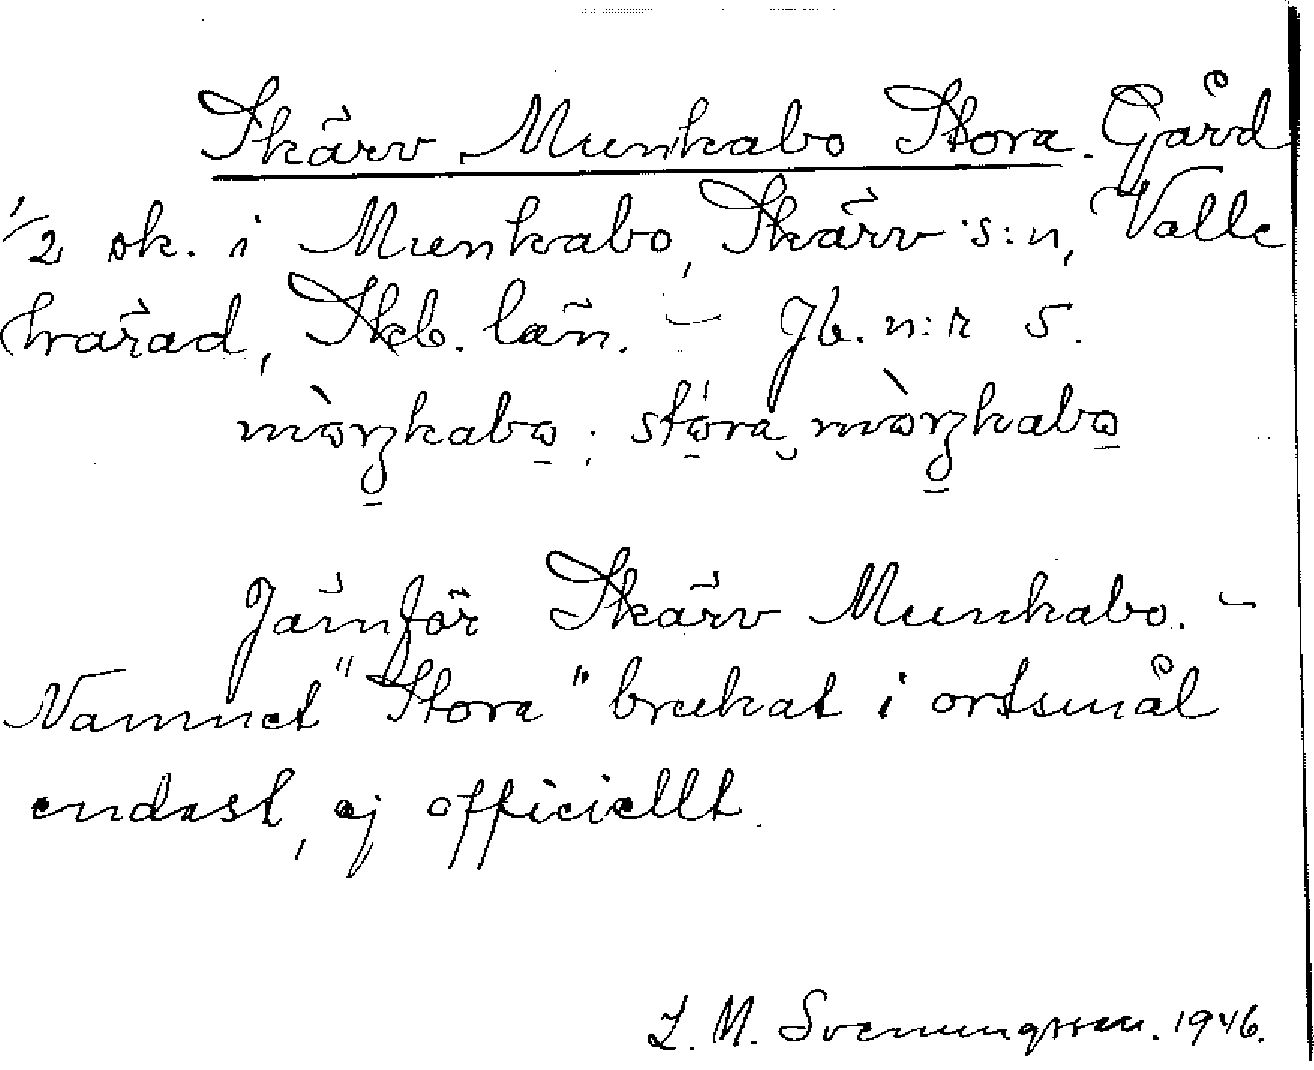 Skärv Munkabo Stora. Gård
1/2 sk. i Munkabo, Skärv s:n, Valle
härad, Skb. län. – Jb. n:r 5.
mòŋkabo; stóra mòŋkabo
Jämför Skärv Munkabo. –
Namnet "Stora" brukat i ortsmål
endast, ej officiellt.
L. M. Svenungsson. 1946.